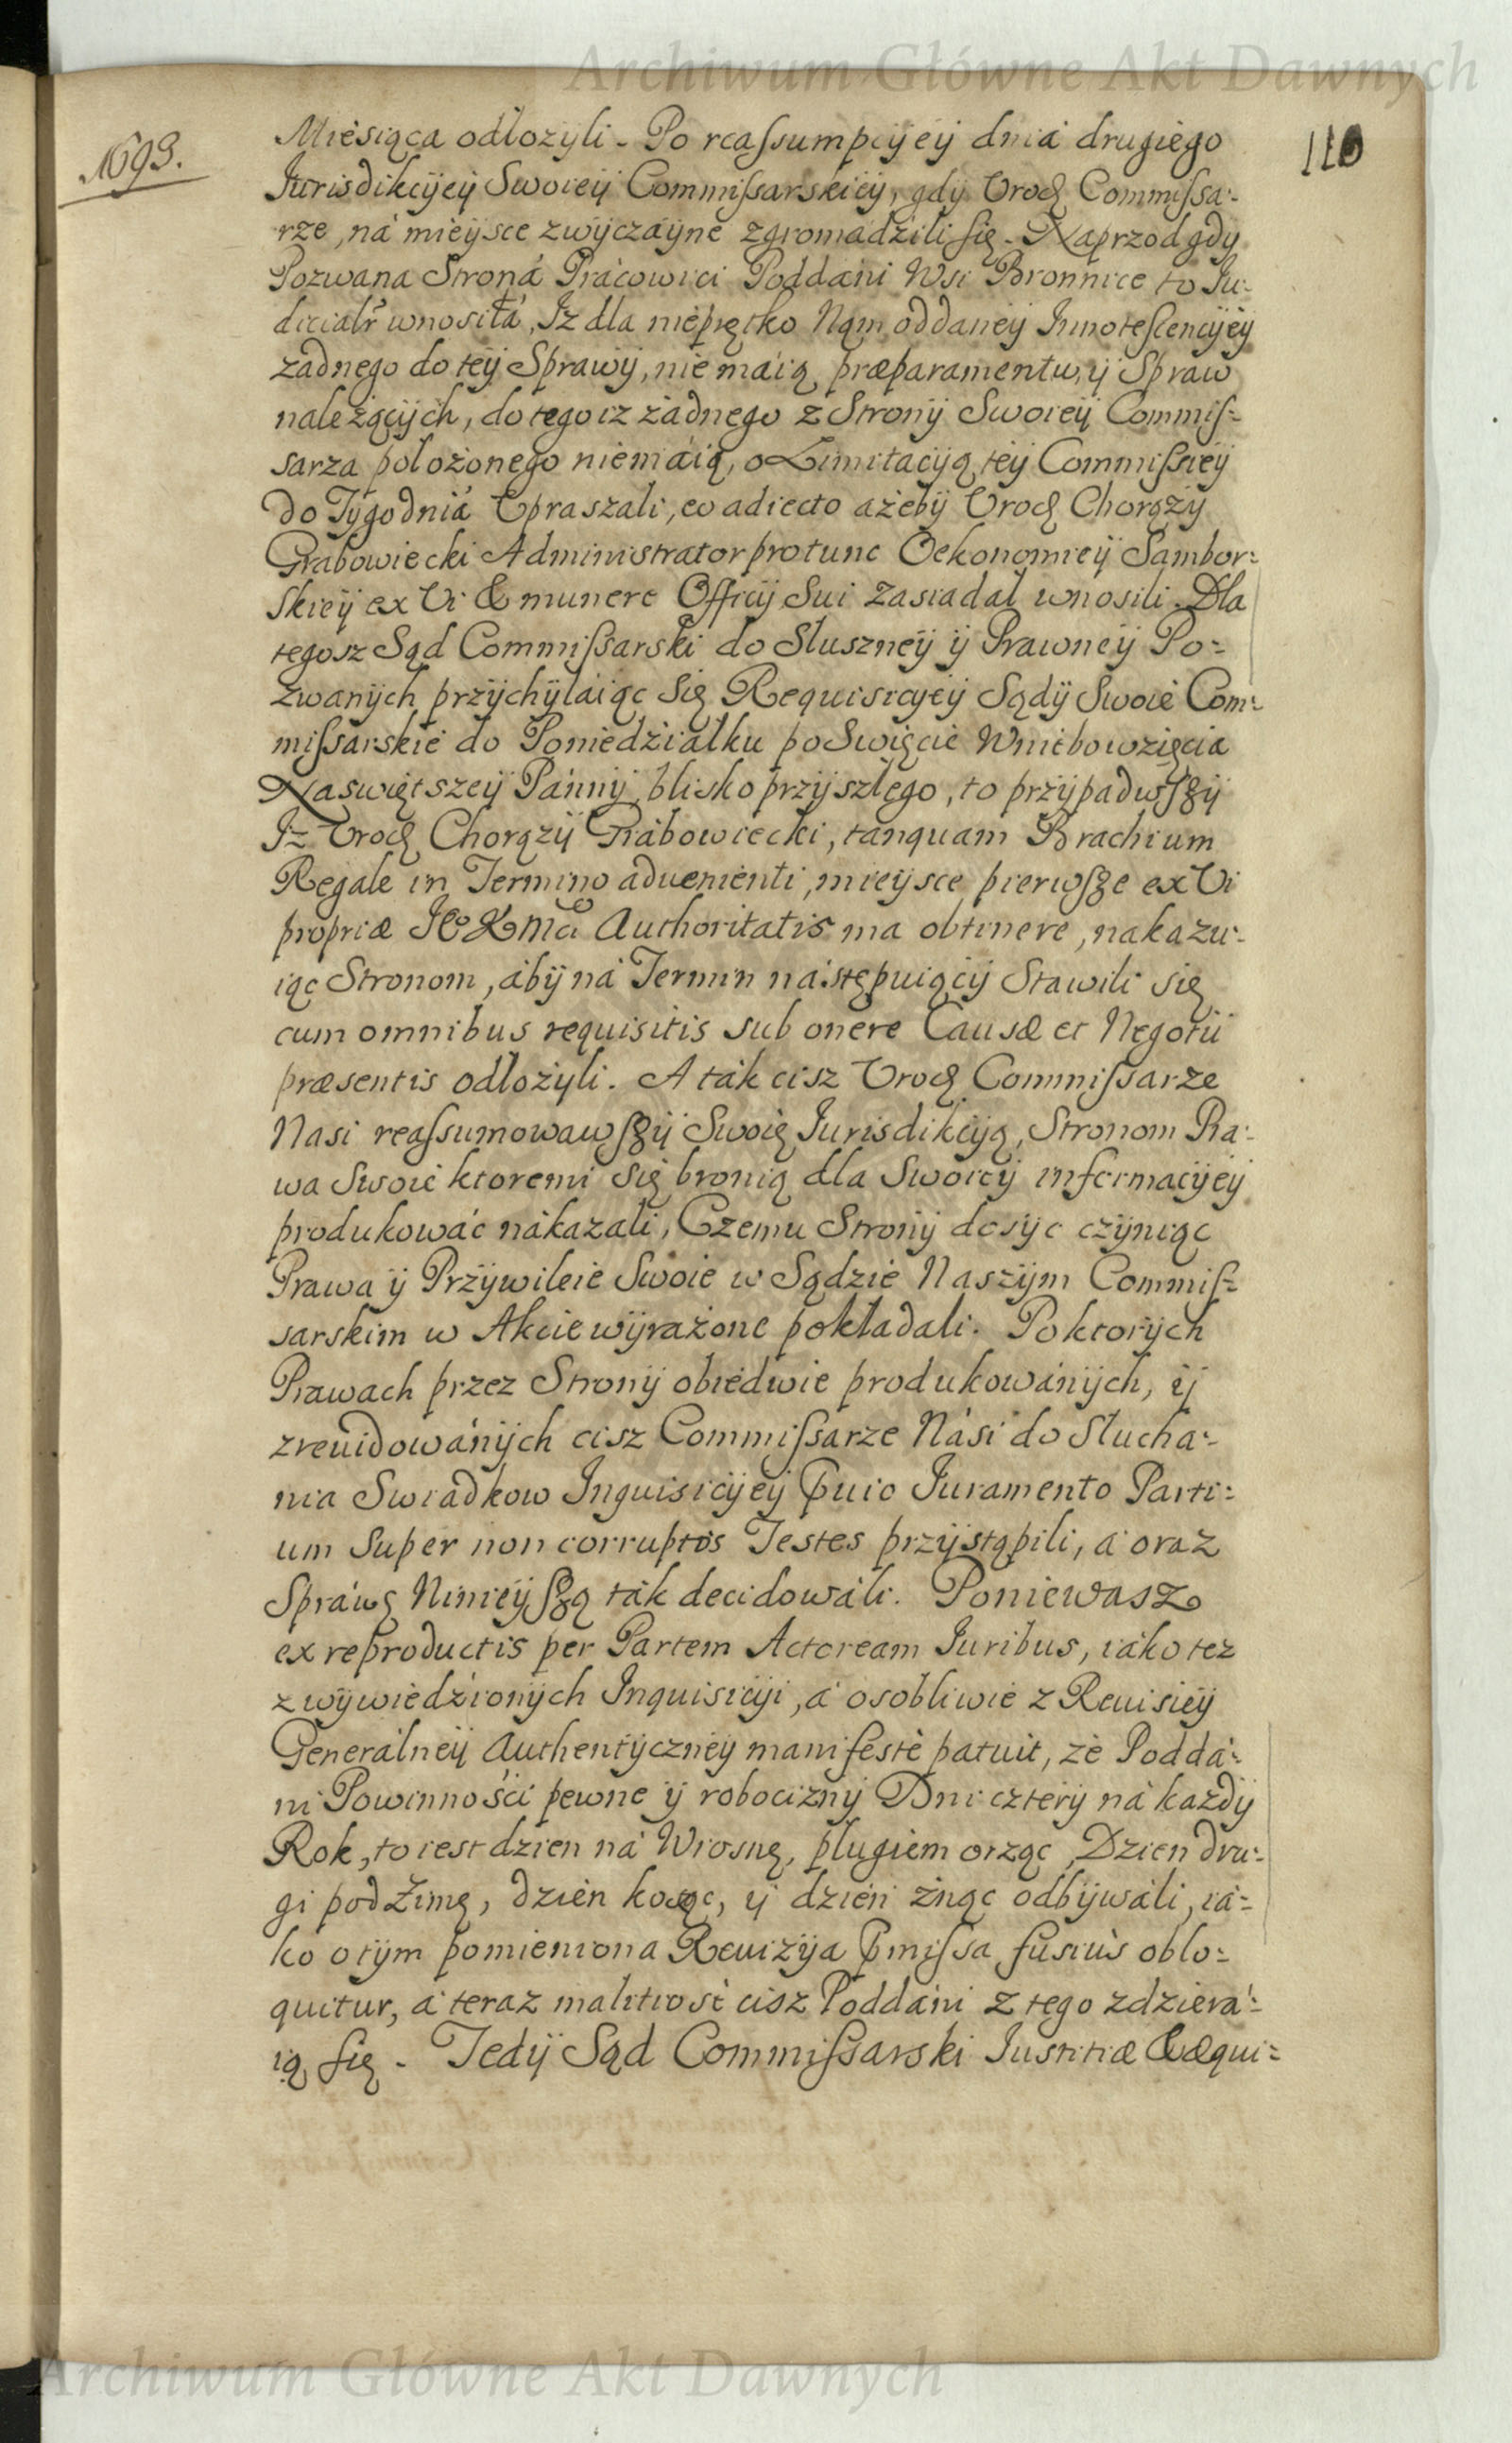 Archiwum Główne Akt Dawnych
1693.
110
Miesiąca odłozyli. Po reassumpcyey dnia drugiego
Jurisdikcyey Swoiey Commissarskiey, gdy Urod. Commissa:
rze, ná mieysce zwyczáyne zgromadzili się. Naprzod gdy
Pozwana Stroná Prácowici Poddáni Wsi Bronnice to Ju:
diciałr wnosiłá, Iż dla nieprętko Nąm oddaney Innotescencyey
zadnego do tey Sprawy, nie máią præparamentu, y Spraw
nalezących, do tego iz żadnego z Strony Swoiey Commis:
sarza położonego niemáią, o Limitacyą tey Commissiey
do Tygodniá Upraszali, eo adiecto ażeby Urod. Chorąży
Grabowiecki Administrator protunc Oekonomiey Sambor:
skiey ex Vi & munere Officij Sui Zasiadał wnosili. Dla
tegosz Sąd Commissarski do Słuszney y Prawney Po:
zwanych przychyláiąc Się Requisicyey Sądy Swoie Com:
missarskie do Poniedziałku po Swięcie Wniebowzięcia
Naswiętszey Pánny, blisko przyszłego, to przypadwszy
Iz Urod. Chorązy Grábowiecki, tanquam Brachium
Regale in Termino aduenienti, mieysce pierwsze ex Vi
propriæ JKMći Authoritatis ma obtinere, nakazu:
iąc Stronom, áby ná Termin nástępuiący Stawili się
cum omnibus requisitis sub onere Causæ et Negotii
præsentis odłożyli. A ták cisz Urod. Commissarze
Nasi reassumowawszy Swoię Jurisdikcyą, Stronom Pra:
wa Swoie ktoremi Się bronią dla Swoiey informacyey
produkowáć nákazali, Czemu Strony dosyc czyniąc
Prawa y Przywileie Swoie w Sądzie Naszym Commis:
sarskim w Akcie wyrażone pokładali. Po ktorych
Prawach przez Strony obiedwie produkowánych, y
zreuidowánych cisz Commissarze Nási do Słucha:
nia Swiadkow Inquisicyey Pruio Juramento Parti:
um Super non corruptos Testes przystąpili, á oraz
Spráwę Ninieyszą ták decidowáli. Poniewasz
ex reproductis per Partem Actoream Juribus, iáko tez
z wywiedzionych Inquisicyi, á osobliwie z Reuisiey
Generálney Authentyczney manifestè patuit, ze Poddá:
ni Powinności pewne y robocizny Dni cztery ná każdy
Rok, to iest dzien ná Wiosnę, pługiem orząc, Dzien dru:
gi pod Zimę, dzień kosząc, y dzień żnąc odbywáli, iá:
ko o tym pomieniona Reuizya Pmissa fusiùs oblo:
quitur, á teraz malitiosè cisz Poddáni z tego zdziera:
ią się. Tedy Sąd Commissarski Justitiæ & æqui:
Archiwum Główne Akt Dawnych